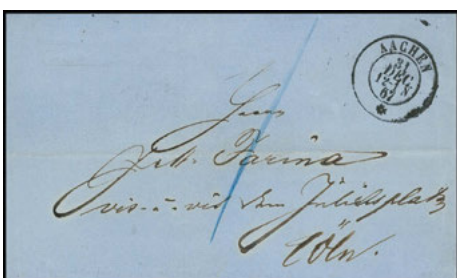 AACHEN
31
DEC
12-1 N
67
Herrn
Joh. Farina
vis-à-vis dem Jülichsplatz
Cöln.